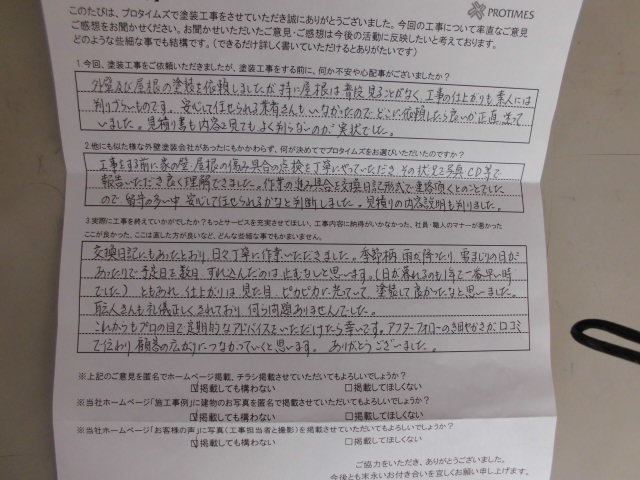 PROTIMES
このたびは、プロタイムズで塗装工事をさせていただき誠にありがとうございました。今回の工事について率直なご意見
ご感想をお聞かせください。お聞かせいただいたご意見・ご感想は今後の活動に反映したいと考えております。
どのような些細な事でも結構です。（できるだけ詳しく書いていただけるとありがたいです）
1.今回、塗装工事をご依頼いただきましたが、塗装工事をする前に、何か不安や心配事がございましたか？
外壁及び屋根の塗装を依頼しましたが、特に屋根は普段見ることがなく、工事の仕上がりも素人には
判りづらいものです。安心して任せられる業者さんもいなかったのでどこに依頼したら良いか正直迷って
いました。見積り書も内容を見てもよく判らないのが実状でした。
2.他にも似た様な外壁塗装会社があったにもかかわらず、何が決めてでプロタイムズをお選びいただいたのですか？
工事をする前に家の壁・屋根の傷み具合の点検も丁寧にやっていただき、その状況を写真、CD等で
報告いただき良く理解できました。作業の進み具合も交換日記形式で連絡頂くとのことでした
ので留守の多い中安心して任せられるかなと判断しました。見積りの内容説明も判りました。
3.実際に工事を終えていかがでしたか？もっとサービスを充実させてほしい、工事内容に納得がいかなかった、社員・職人のマナーが悪かった
ここが良かった、ここは直した方が良いなど、どんな些細な事でもかまいません。
交換日記にもあったとおり、日々丁寧に作業いただきました。季節柄 雨が降たり、雪まじりの日が
あったりで予定日は数日ずれ込んだのは止むなしと思います。（日が暮れるのも1年で一番早い時
でした）ともあれ、仕上がりは見た目、ピカピカに光っていて、塗装して良かったなと思いました。
職人さんも礼儀正しくされており、何ら問題ありませんでした。
これからもプロの目で定期的なアドバイスをいただけたら幸いです。アフターフォローのきめ細やかさが口コミ
で伝わり顧客の広がりにつながっていくと思います。ありがとうございました。
※上記のご意見を匿名でホームページ掲載、チラシ掲載させていただいてもよろしいでしょうか？
☑掲載しても構わない　□掲載してほしくない
※当社ホームページ「施工事例」に建物のお写真を匿名で掲載させていただいてもよろしいでしょうか？
☑掲載しても構わない　□掲載してほしくない
※当社ホームページ「お客様の声」に写真（工事担当者と撮影）を掲載させていただいてもよろしいでしょうか？
☑掲載しても構わない　□掲載してほしくない
ご協力をいただき、ありがとうございました。
今後とも末永いお付き合いを宜しくお願い申し上げます。